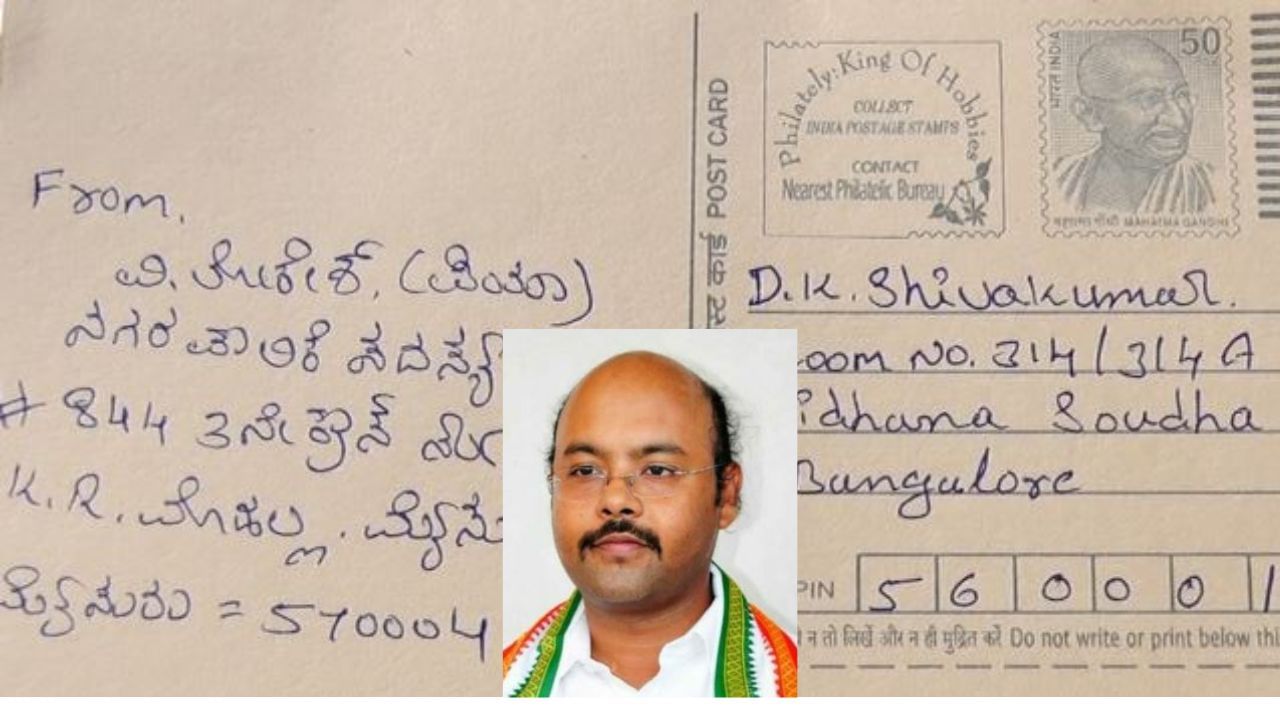 From,
ವಿ. ಲೋಕೇಶ್, (ಪಿಯಾ)
ನಗರ ಪಾಲಿಕೆ ಸದಸ್ಯ
# 844 3ನೇ ಕ್ರಾಸ್
K.R. ಮೊಹಲ್ಲ. ಮೈಸೂ
ಮೈಸೂರು = 570004
POST CARD
Philately: King Of Hobbies
COLLECT
INDIA POSTAGE STAMPS
CONTACT
Nearest Philatelic Bureau
भारत INDIA
50
महात्मा गाँधी MAHATMA GANDHI
D.K. Shivakumar.
oom No. 314/314A
idhana Soudha
Bangalore
PIN 560001
न तो लिखें और न ही मुद्रित करें Do not write or print below thi